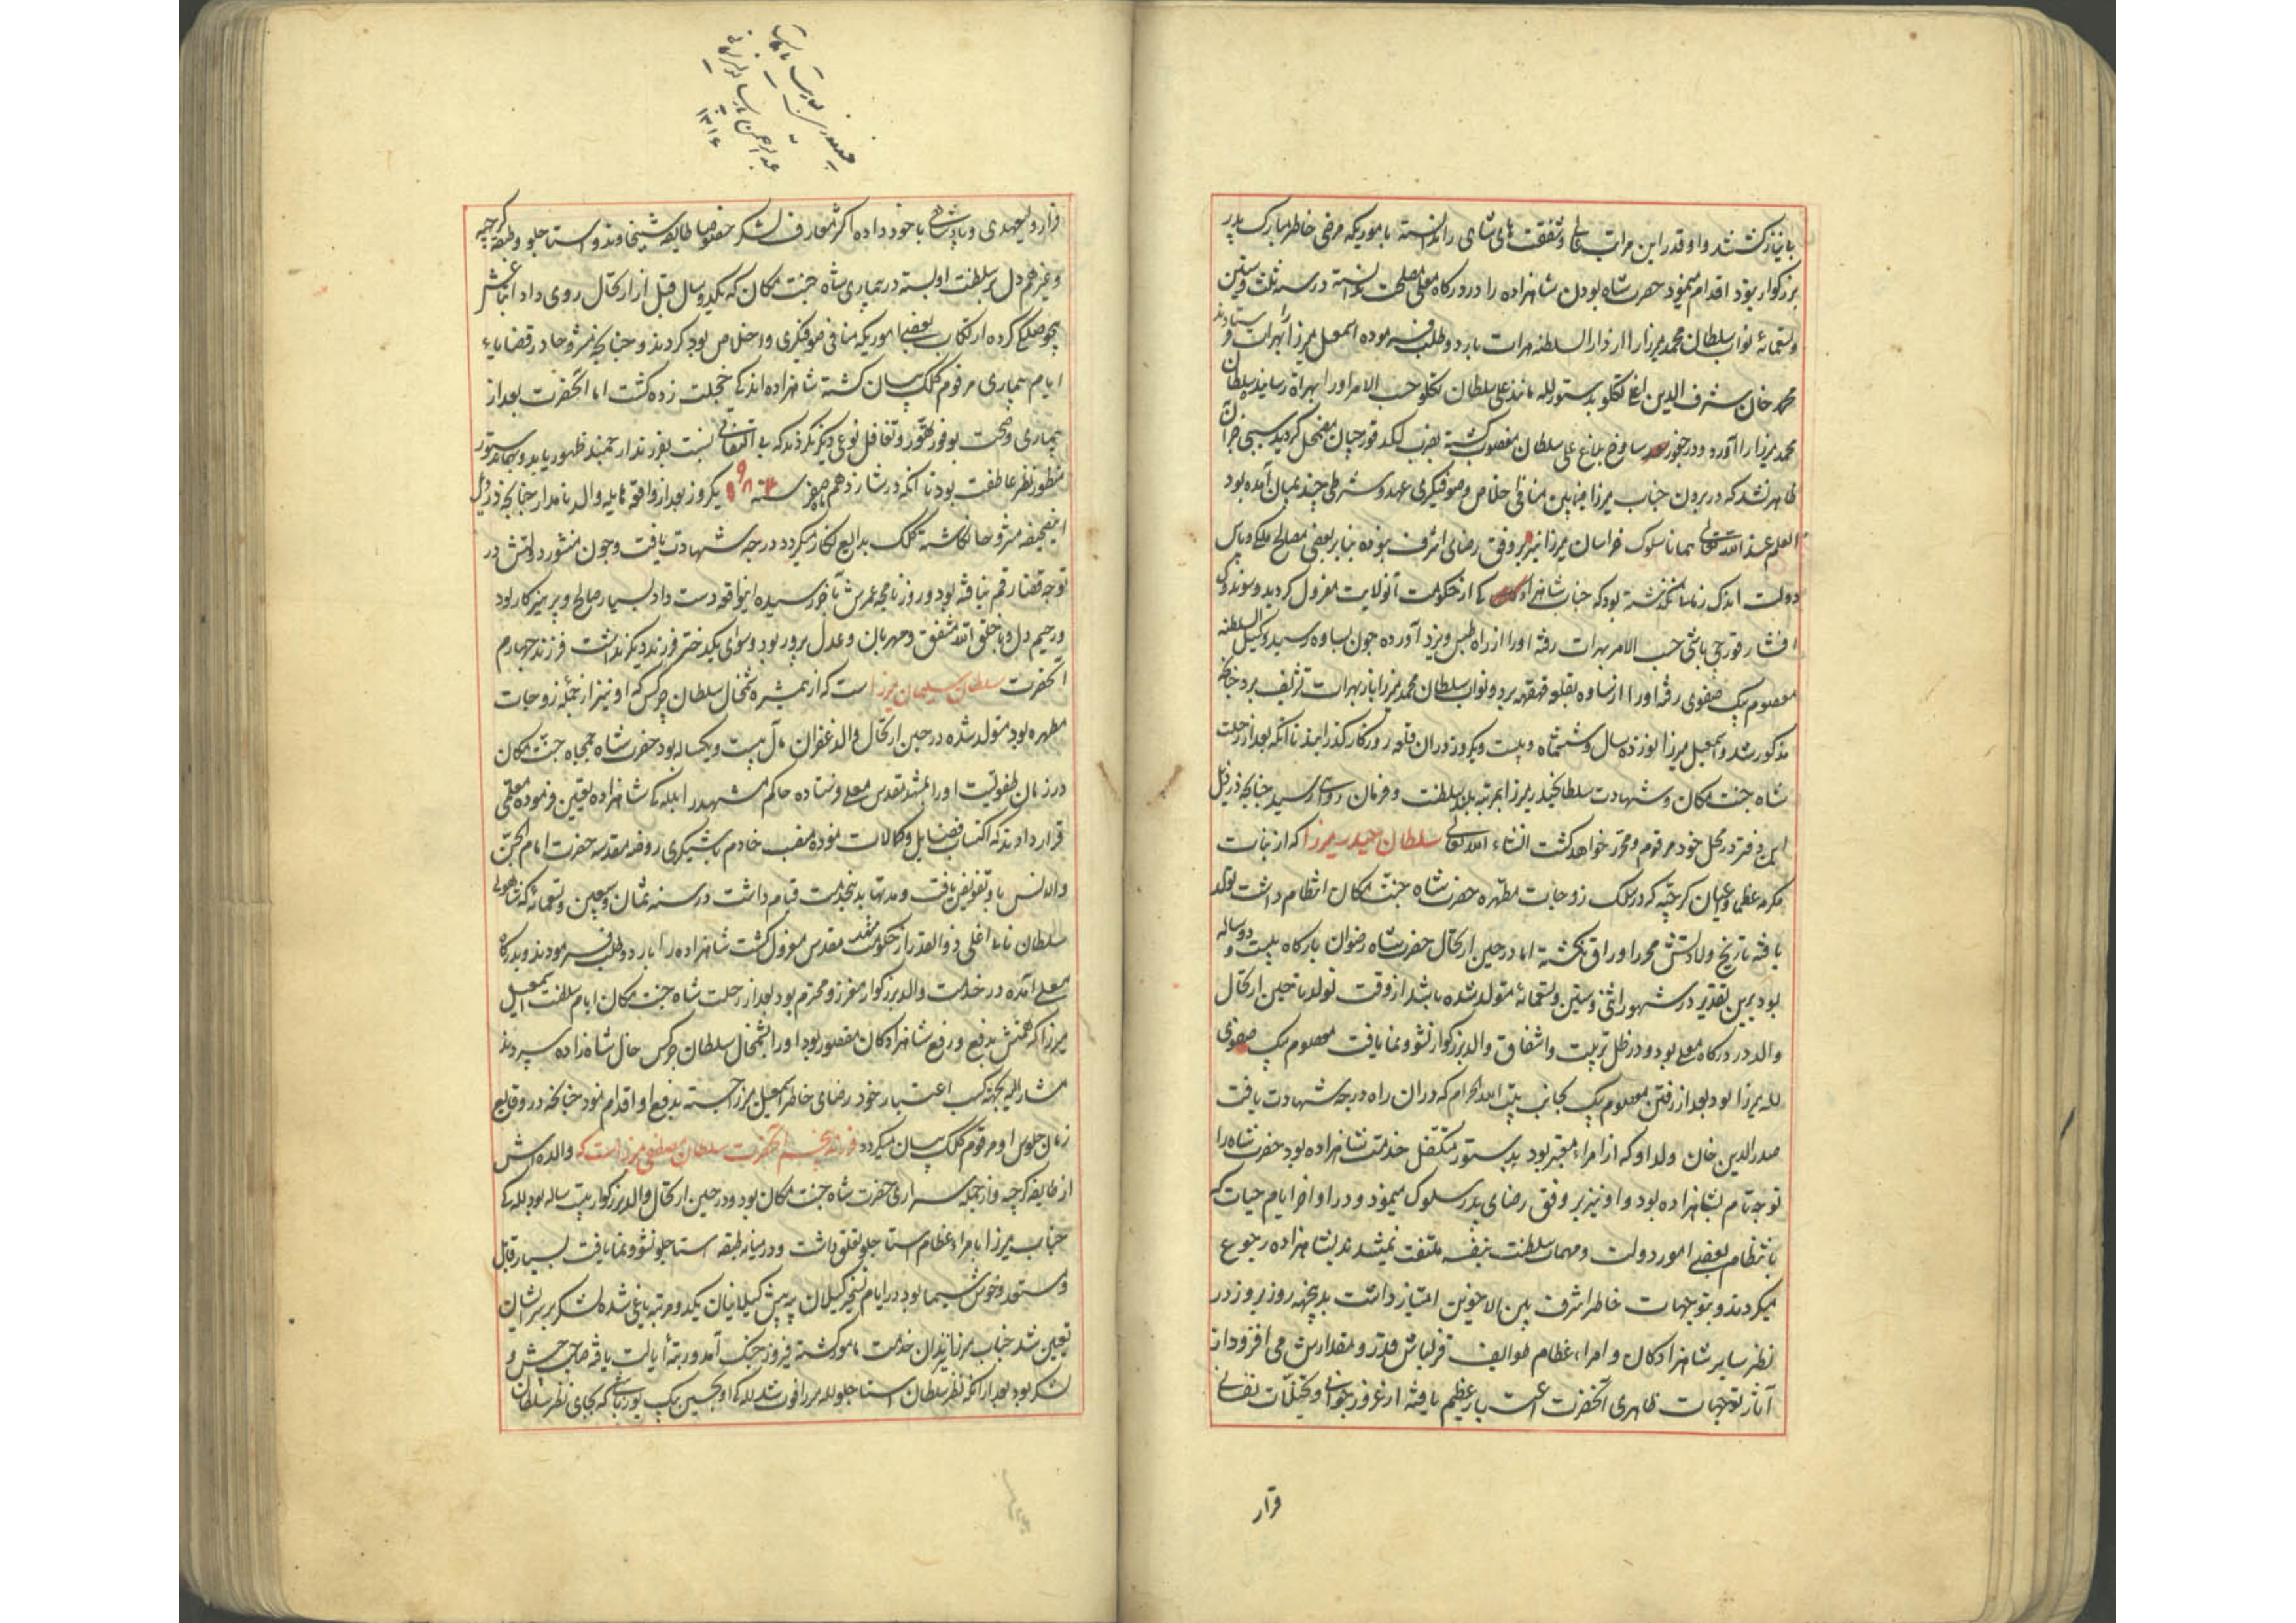 با نیاز گشتند و او قدر این مراتب عالی و شفقت های شاهی را ندانسته بامریکه مرضی خاطر مبارک پدر
بزرگوار نبود اقدام مینمود حضرت شاه بودن شاهزاده را در درکاه معلی مصلحت ندانسته در سنه ثلث و ستین
و تسعمائه نواب سلطان محمد میرزا را از دار السلطنه هرات باردو طلب فرموده اسمعیل میرزا را بهرات فرستادند
محمد خان شرف الدین اغلی تکلو بدستور لله ماند علی سلطان تکلو حسب الامر او را بهراة رسانید سلطان
محمد میرزا را آورد و در حضور علی سلطان مغضوب گشته بضرب لکد قورچیان مضمحل گردید سبب خرآن
ظاهر نشد که در بردن جناب میرزا منافی اخلاص و صوفیگری عهد و شرطی چند بمیان آمده بود
العلم عند الله تعالی همانا سلوک خراسان میرزا نیز بر وفق رضای اشرف نبوده بنا بر بعضی مصالح ملکی و پاس
دولت اندک زمانی نگذشته بود که جناب شاهزادگی از حکومت آنولایت معزول گردید و سوندک
افشار قورچی باشی حسب الامر بهرات رفته او را از راه طبس و یزد آورده چون بساوه رسید وکیل السلطنه
معصوم بیک صفوی رفته او را از ساوه بقلعه قهقهه برد و نواب سلطان محمد میرزا باز بهرات تشریف برد چنانچه
مذکور شد و اسمعیل میرزا نوزده سال و ششماه و بیست و یکروز در ان قلعه روزکار گذرانید تا آنکه بعد از رحلت
شاه جنت مکان و شهادت سلطان حیدر میرزا بمرتبه بلند سلطنت و فرمان روائی رسید چنانچه در ذیل
این دفتر در محل خود مرقوم و محرر خواهد گشت انشاء الله تعالی سلطان حیدر میرزا که از بنات
مکرمه عظما و اعیان کرجیه که در سلک زوجات مطهره حضرت شاه جنت مکان انتظام داشت تولد
یافته تاریخ ولادتش محرر اوراق نگشته اما در حین ارتحال حضرت شاه رضوان بارکاه بیست و دو ساله
بود برین تقدیر در شهور اثنی و ستین و تسعمائه متولد شده باشد از وقت تولد تا حین ارتحال
والد در درکاه معلی بود و در ظل تربیت و اشفاق والد بزرکوار نشو و نما یافت معصوم بیک صفوی
لله میرزا بود بعد از رفتن معصوم بیک بجانب بیت الله الحرام که در ان راه درجه شهادت یافت
صدر الدین خان ولد او که از امراء معتبر بود بدستور متکفل خدمت شاهزاده بود حضرت شاه را
توجه تام بشاهزاده بود و او نیز بر وفق رضای پدر سلوک مینمود و در اواخر ایام حیات که
بانتظام بعضی امور دولت و مهمات سلطنت بنفسه ملتفت نمیشدند بشاهزاده رجوع
میکردند و بتوجهات خاطر اشرف بین الاخوین امتیاز داشت بدینجهه روز بروز در
نظر سایر شاهزادکان و امراء عظام طوایف قزلباش قدر و مقدارش می افزود از
آثار توجهات ظاهری آنحضرت اعتبار عظیم یافته از غرور جوانی و تخیلات نفسانی
قرار
عبدالرحمن
۱۳۱۶
قرار ولیعهدی و پادشاهی باخود داده اکثر معارف لشکر خصوصا طایفه شیخاوند و استاجلو و طبقه کرجیه
و غیرهم دل بر سلطنت او بسته در بیماری شاه جنت مکان که یکدو سال قبل از ارتحال روی داد اتباعش
بیحوصلگی کرده ارتکاب بعضی امور که منافی صوفیگری و اخلاص بود کردند و چنانچه مشروحا در قضایاء
ایام بیماری مرقوم کلک بیان گشته شاهزاده اندکی خجلت زده گشت اما آنحضرت بعد از
بیماری و صحت بوفور تهور و تغافل نوعی دیگر نکردند که بی التفاتی نسبت بفرزند ارجمند ظهور یابد و همچنان بدستور
منظور نظر عاطفت بود تا آنکه در شانزدهم ماه صفر سنه ۹۸۴ یکروز بعد از واقعه هایله والد نامدار چنانچه در ذیل
این صحیفه مشروحا نکاشته کلک بدایع نکار میکردد درجه شهادت یافت و چون منشور دولتش در
توجه قضا رقم نیافته بود و روزنامچه عمرش بآخر رسیده اینواقعه دست داد بسیار صالح و پرهیزکار بود
و رحیم دل و با خلق الله مشفق و مهربان و عدل پرور بود و سوای یکدختر فرزند دیگر نداشت فرزند چهارم
آنحضرت سلطان سلیمان میرزا است که از همشیره شمخال سلطان چرکس که او نیز از جمله زوجات
مطهره بود متولد شده در حین ارتحال والد غفران مآل بیست و یکساله بود حضرت شاه جمجاه جنت مکان
در زمان طفولیت او را بمشهد مقدس معلی فرستاده حاکم مشهد را بللگی شاهزاده تعیین فرموده معلمی
قرار دادند که اکتساب فضایل و کمالات نموده منصب خادم باشیگری روضه مقدسه حضرت امام الجن
والانس باو تفویض یافت و مدتها بدینخدمت قیام داشت در سنه ثمان و سبعین و تسعمائه که شاهولی
سلطان تاتی اغلی ذوالقدر از حکومت مشهد مقدس معزول گشت شاهزاده را باردو طلب فرمودند و بدرکاه
معلی آمده در خدمت والد بزرکوار معزز و محترم بود بعد از رحلت شاه جنت مکان ایام سلطنت اسمعیل
میرزا که همتش بدفع و رفع شاهزادکان مقصور بود او را بشمخال سلطان چرکس خال شاه زاده سپردند
مشار الیه بجهة کسب اعتبار خود رضای خاطر اسمعیل میرزا جسته بدفع او اقدام نمود چنانچه در وقایع
زمان جلوس او مرقوم کلک بیان میکردد فرزند پنجم آنحضرت سلطان مصطفی میرزا است که والده اش
از طایفه کرجیه و از جمله سراری حضرت شاه جنت مکان بود و در حین ارتحال والد بزرکوار بیست ساله بود للگی
جناب میرزا بامراء عظام استاجلو تعلق داشت و در میانه طبقه استاجلو نشو و نما یافت بسیار قابل
و مستعد و خوش سیما بود در ایام تسخیر کیلان بیه پیش کیلانیان یکدو مرتبه یاغی شده لشکر بر سر ایشان
تعیین شد جناب میرزا بدان خدمت مامور گشته فیروز جنک آمد و رتبه ایالت یافته صاحب جیش و
لشکر بود بعد از آنکه نظر سلطان استاجلو لله میرزا فوت شد للگی او بحسین بیک یوزباشی که بجای نظر سلطان